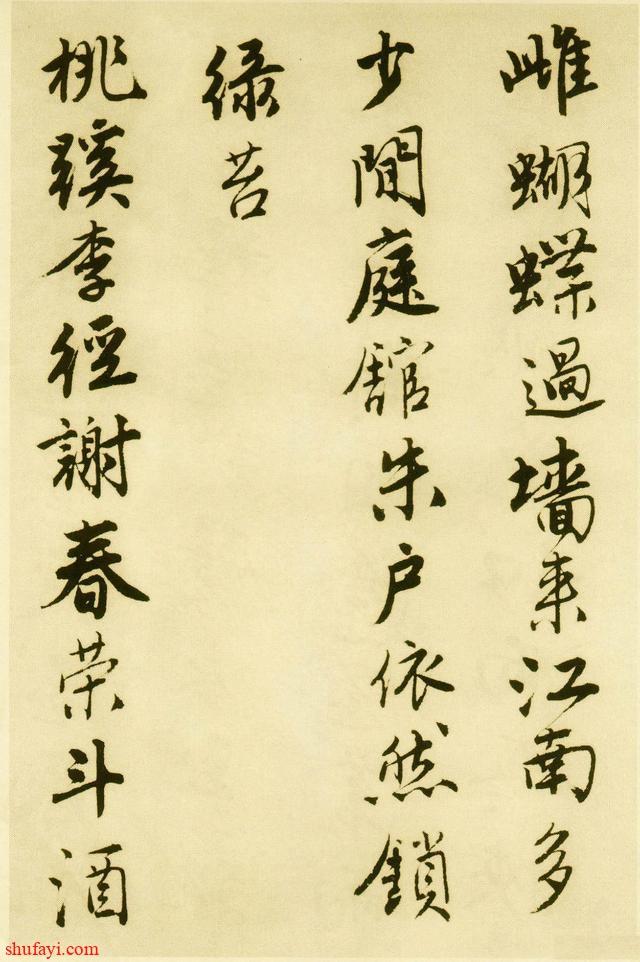 雌蝴蝶過墻来江南多
少閒庭舘朱户依然鎖
緑苔
桃蹊李徑謝春荣斗酒
shufayi.com